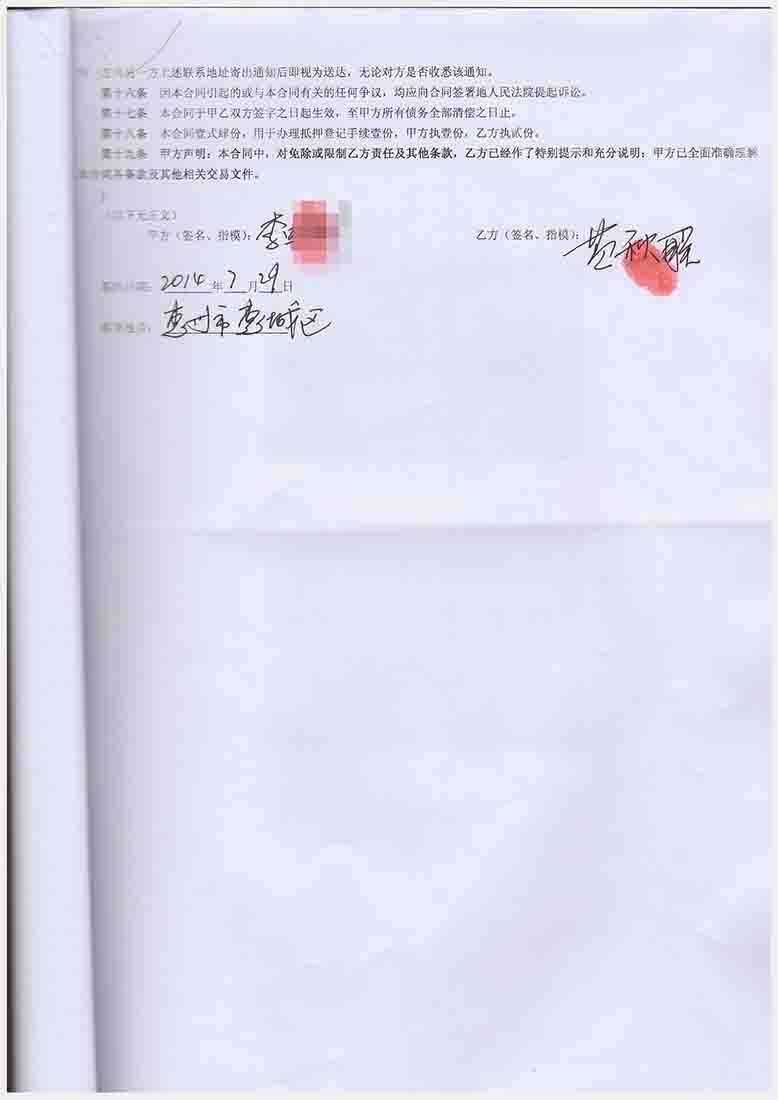 一方上述联系地址寄出通知后即视为送达，无论对方是否收悉该通知。
第十六条 因本合同引起的或与本合同有关的任何争议，均应向合同签署地人民法院提起诉讼。
第十七条 本合同于甲乙双方签字之日起生效，至甲方所有债务全部清偿之日止。
第十八条 本合同壹式肆份，用于办理抵押登记手续壹份，甲方执壹份，乙方执贰份。
第十九条 甲方声明：本合同中，对免除或限制乙方责任及其他条款，乙方已经作了特别提示和充分说明；甲方已全面准确理解
本合同各条款及其他相关交易文件。
（以下无正文）
甲方（签名、指模）：李 乙方（签名、指模）：黄秋
签署日期：2014年7月29日
签署地点：惠州市惠城区